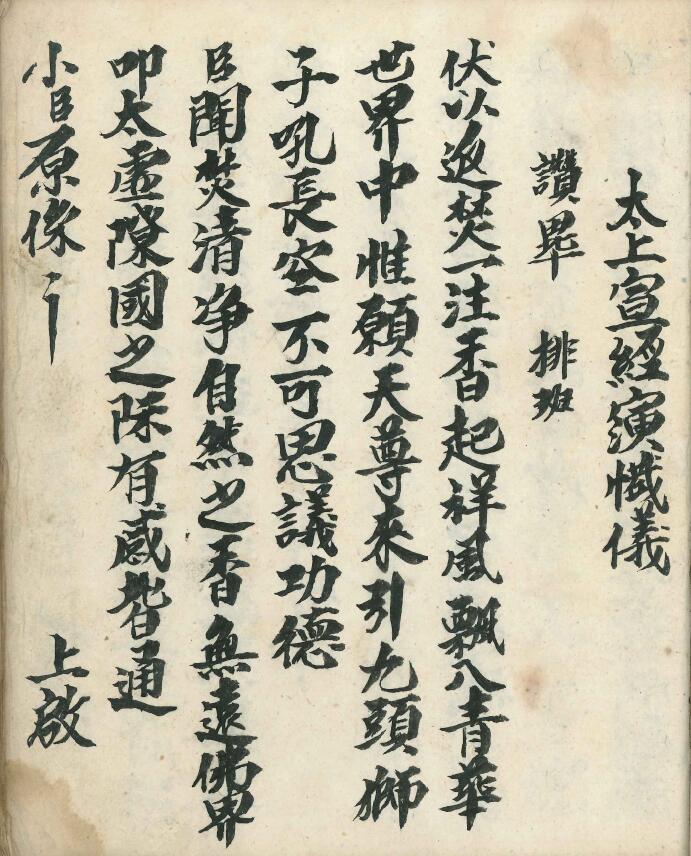 太上宣經演懺儀
讚畢 排班
伏以返焚一注香起祥風飄八青華
世界中惟願天尊來引九頭獅
子吼長空不可思議功德
臣聞焚清净自然之香無遠佛界
叩太虛隙國之際有感皆通
小臣原係 上啟